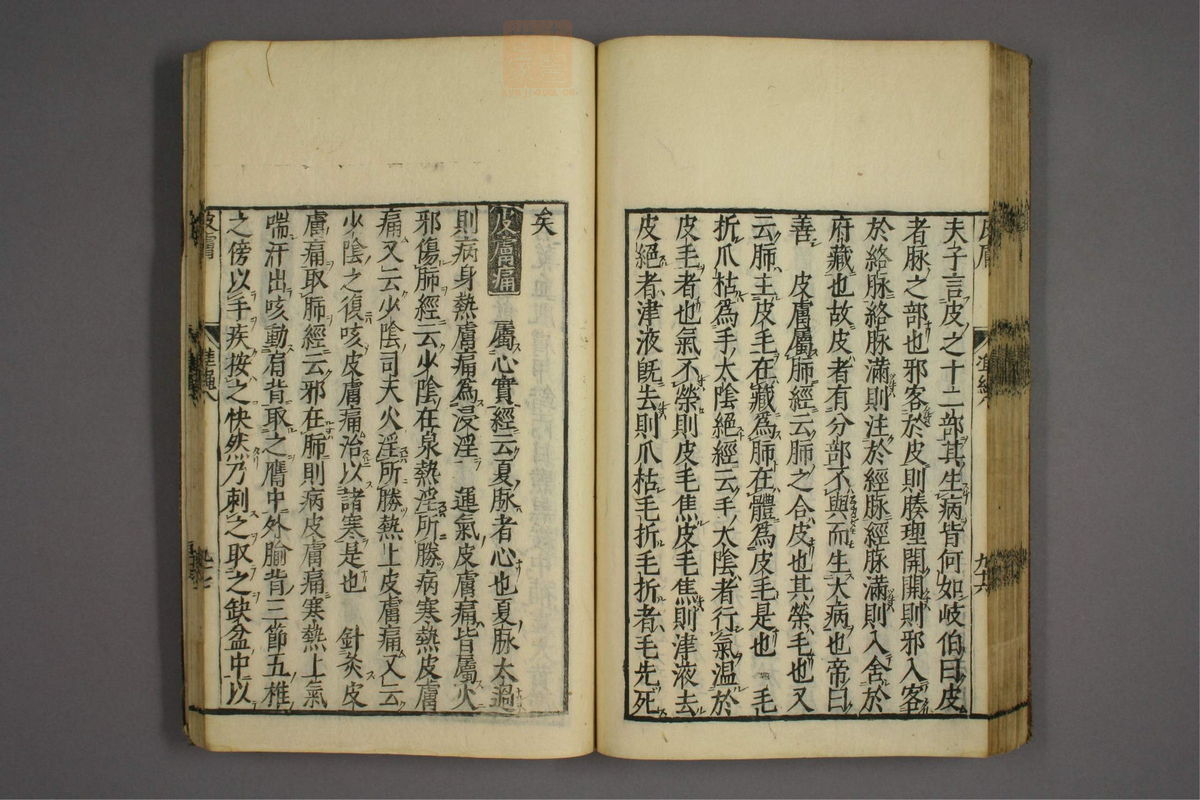 夫子言皮之十二部其生病皆何如岐伯曰皮
者脉之部也邪客於皮則腠理開開則邪入客
於絡脉絡脉滿則注於經脉經脉滿則入舍於
府藏也故皮者有分部不與而生大病也帝曰
善　皮膚屬肺經云肺之合皮也其榮毛也又
云肺主皮毛在藏爲肺在體爲皮毛是也　毛
折爪枯爲手太陰絕經云手太陰者行氣温於
皮毛者也氣不榮則皮毛焦皮毛焦則津液去
皮絕者津液既去則爪枯毛折毛折者毛先死
矣
皮膚痛　屬心實經云夏脉者心也夏脉太過
則病身熱膚痛爲浸淫　運氣皮膚痛皆屬火
邪傷肺經云少陰在泉熱淫所勝病寒熱皮膚
痛又云少陰司天火淫所勝熱上皮膚痛又云
少陰之復咳皮膚痛治以諸寒是也　針灸皮
膚痛取肺經云邪在肺則病皮膚痛寒熱上氣
喘汗出咳動肩背取之膺中外腧背三節五椎
之傍以手疾按之快然乃刺之取之缺盆中以
皮膚
準繩八